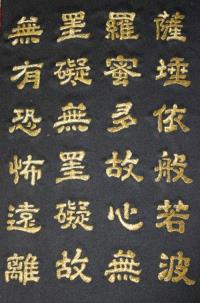 薩埵依般若波
羅蜜多故心無
罣礙無罣礙故
無有恐怖遠離